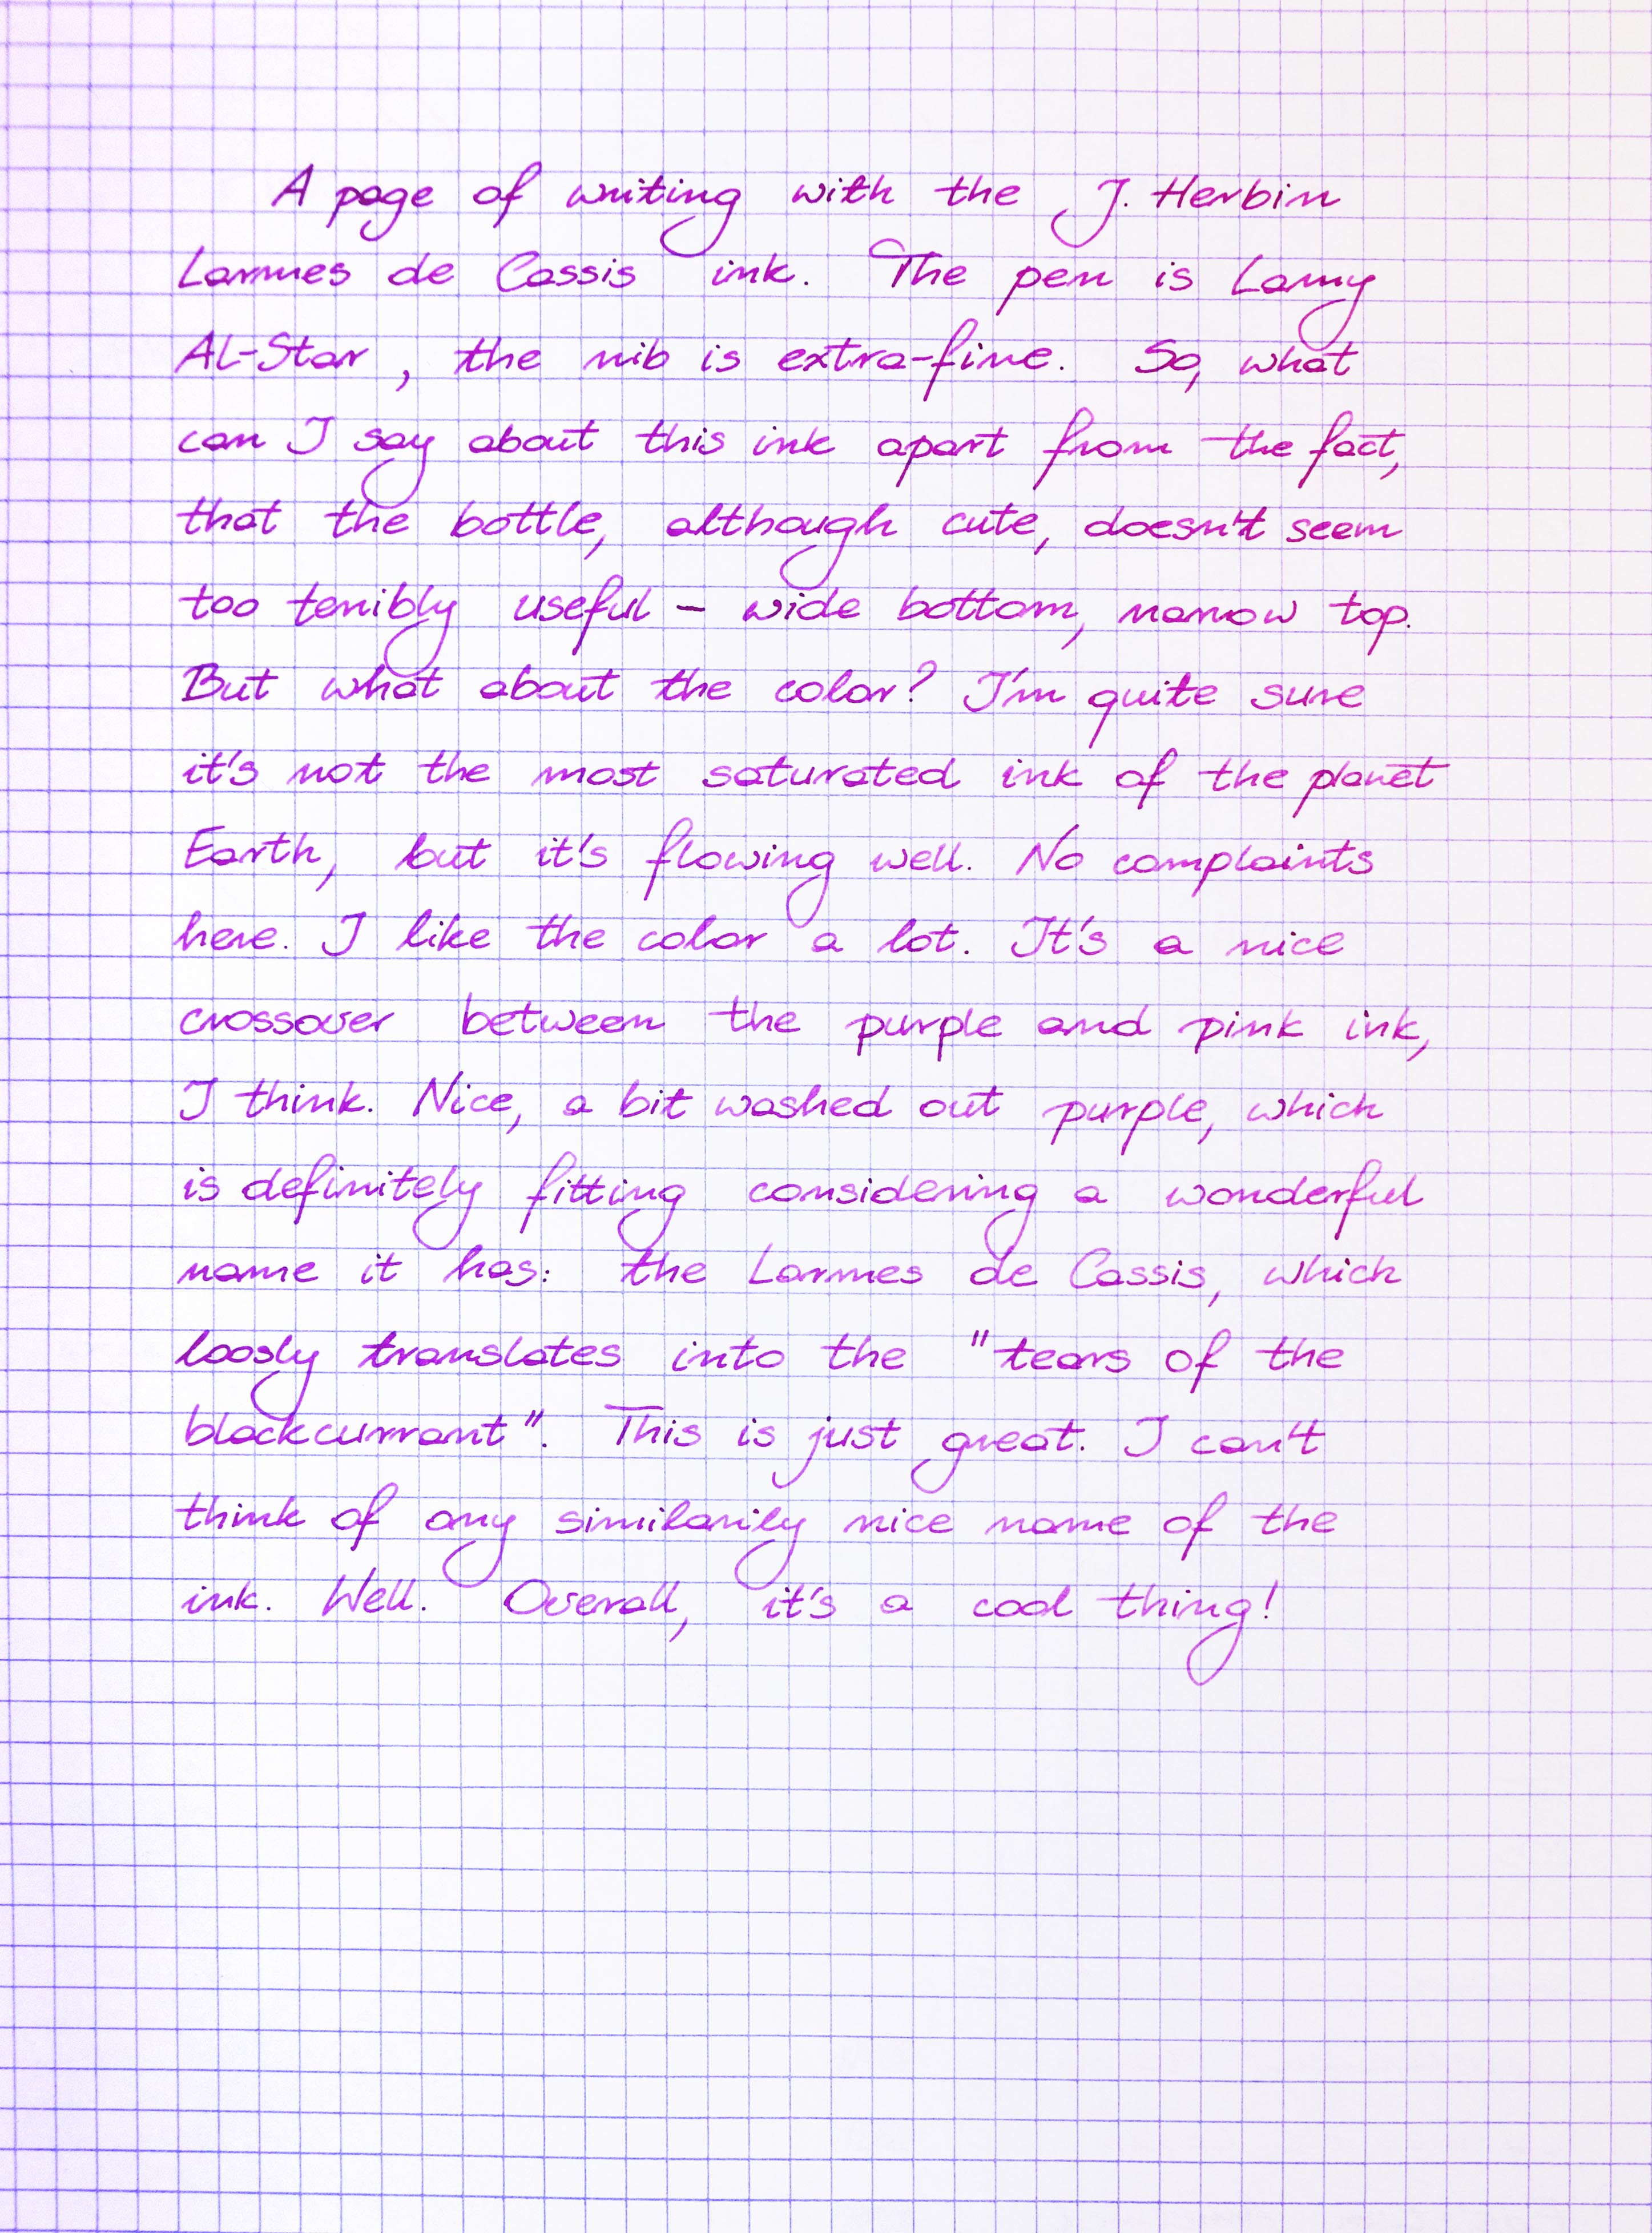 A page of writing with the J. Herbin
Larmes de Cassis ink. The pen is Lamy
AL-Star, the nib is extra-fine. So, what
can I say about this ink apart from the fact,
that the bottle, although cute, doesn't seem
too terribly useful – wide bottom, narrow top.
But what about the color? I'm quite sure
it's not the most saturated ink of the planet
Earth, but it's flowing well. No complaints
here. I like the color a lot. It's a nice
crossover between the purple and pink ink,
I think. Nice, a bit washed out purple, which
is definitely fitting considering a wonderful
name it has: the Larmes de Cassis, which
loosly translates into the "tears of the
blackcurrant". This is just great. I can't
think of any similarily nice name of the
ink. Well. Overall, it's a cool thing!